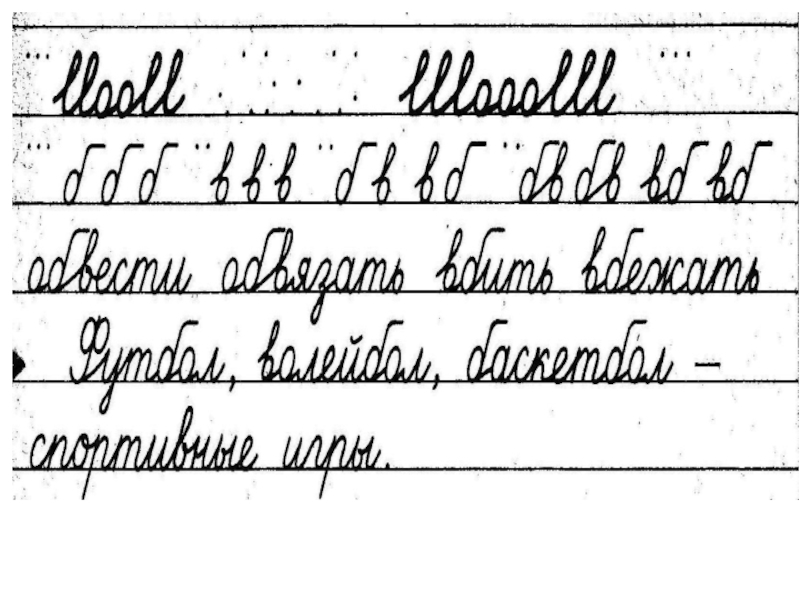 б б б в в в б в в б бв бв вб вб
обвести обвязать вбить вбежать
Футбол, волейбол, баскетбол –
спортивные игры.